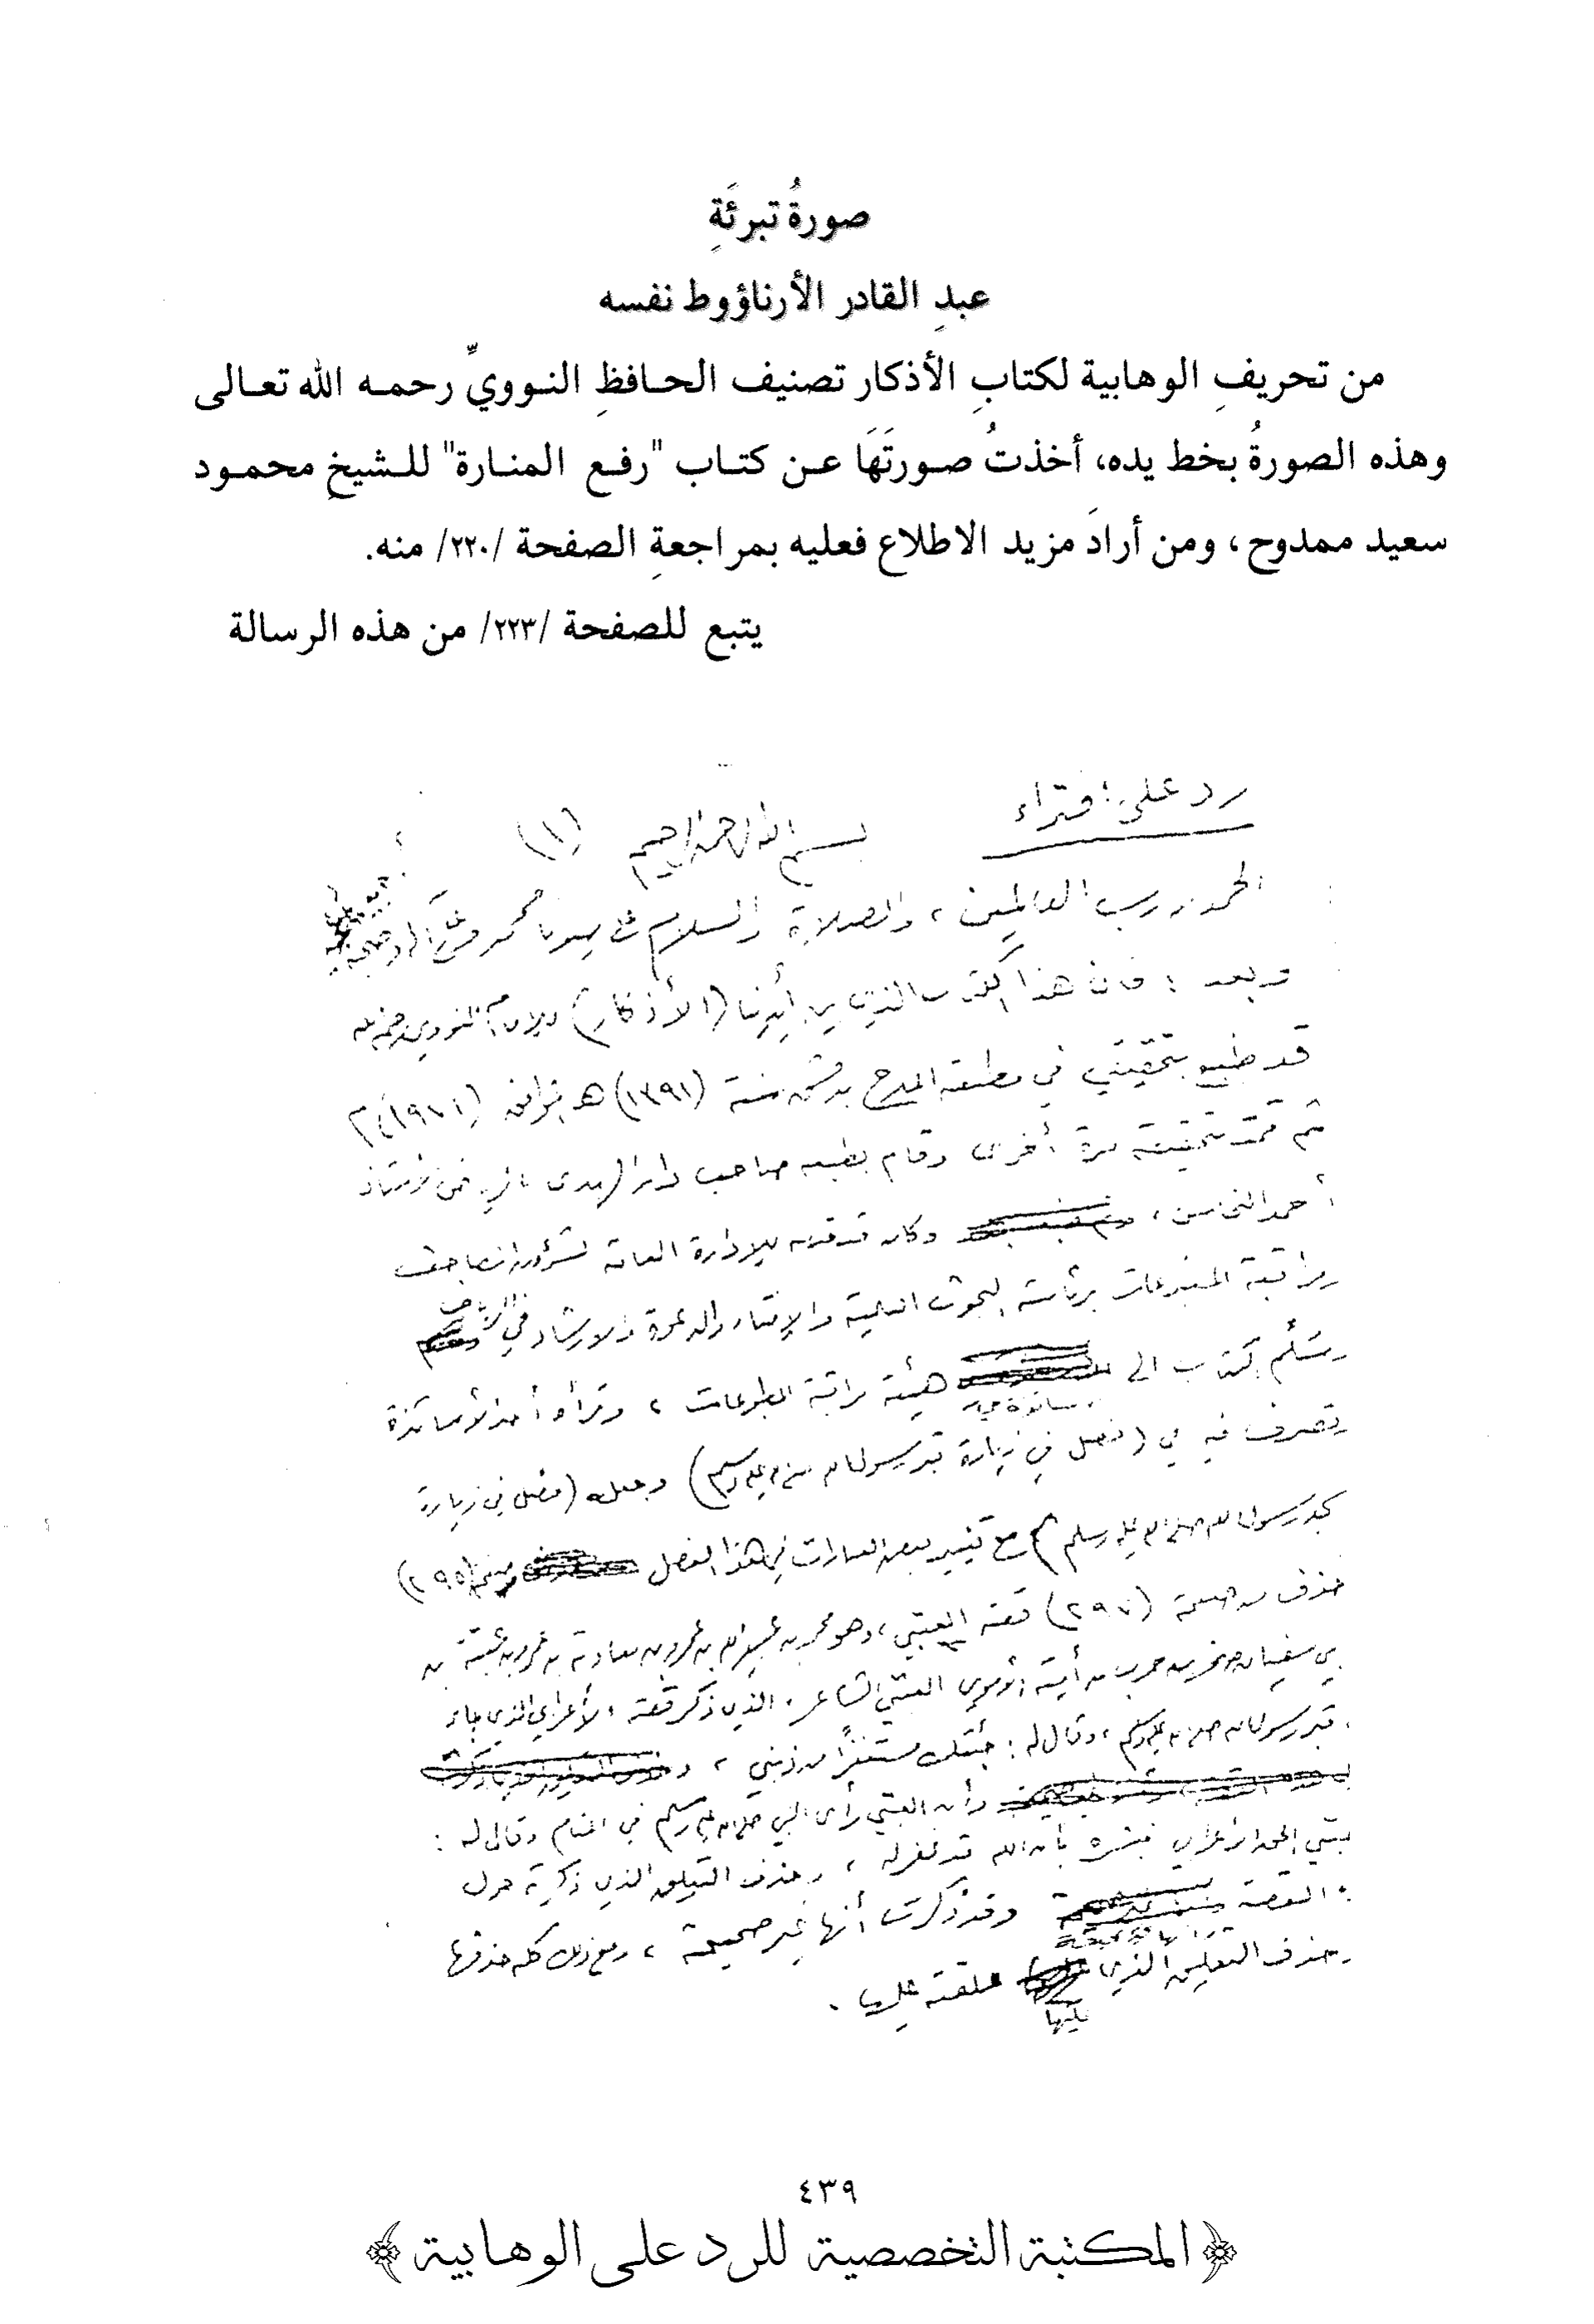 صورةُ تبرئَةِ
عبدِ القادر الأرناؤوط نفسه
من تحريفِ الوهابية لكتابِ الأذكار تصنيف الحافظِ النوويِّ رحمه الله تعالى
وهذه الصورةُ بخط يده، أخذتُ صورتَهَا عن كتاب "رفع المنارة" للشيخ محمود
سعيد ممدوح، ومن أرادَ مزيد الاطلاع فعليه بمراجعةِ الصفحة /٢٢٠/ منه.
يتبع للصفحة /٢٢٣/ من هذه الرسالة
رد على افتراء
بسم الله الرحمن الرحيم (١)
الحمد لله رب العالمين، والصلاة والسلام على سيدنا محمد وعلى آله وصحبه
وبعد: فإن هذا الكتاب الذي بين أيدينا (الأذكار) للإمام النووي رحمه الله
قد طبع بتحقيقي في مطبعة الملاح بدمشق سنة (١٣٩١) هـ الموافق (١٩٧١) م
ثم قمت بتحقيقه مرة أخرى وقام بطبعه صاحب دار الهدى بالرياض الأستاذ
أحمد النحاس، وكان قد قدمه للإدارة العامة لشؤون المصاحف
ومراقبة المطبوعات برئاسة البحوث العلمية والإفتاء والدعوة والإرشاد في الرياض
وسُلِّم الكتاب الى هيئة مراقبة المطبوعات، وقرأه أحد الأساتذة
وتصرف فيه في (فصل في زيارة قبر رسول الله صلى الله عليه وسلم) وجعله (فصل في زيارة
مسجد رسول الله صلى الله عليه وسلم) مع تغيير بعض العبارات في هذا الفصل صفحة (٢٩٥)
وحذف من صفحة (٢٩٧) قصة العتبي، وهو محمد بن عبيد الله بن عمرو بن معاوية بن عمرو بن عتبة بن
أبي سفيان صخر بن حرب بن أمية الأموي العتبي الشاعر، الذي ذكر قصة الأعرابي الذي جاء
قبر رسول الله صلى الله عليه وسلم، وقال له: جئتك مستغفرًا من ذنبي،
وأن العتبي رأى النبي صلى الله عليه وسلم في المنام وقال له:
يا عتبي إلحق الأعرابي فبشره بأن الله قد غفر له، وحذف التعليق الذي ذكرته حول
القصة وقد ذكرت أنها غير صحيحة، ومع ذلك كله حذفها
وحذف التعليق الذي علقته عليها.
٤٣٩
﴿المكتبة التخصصية للرد على الوهابية﴾